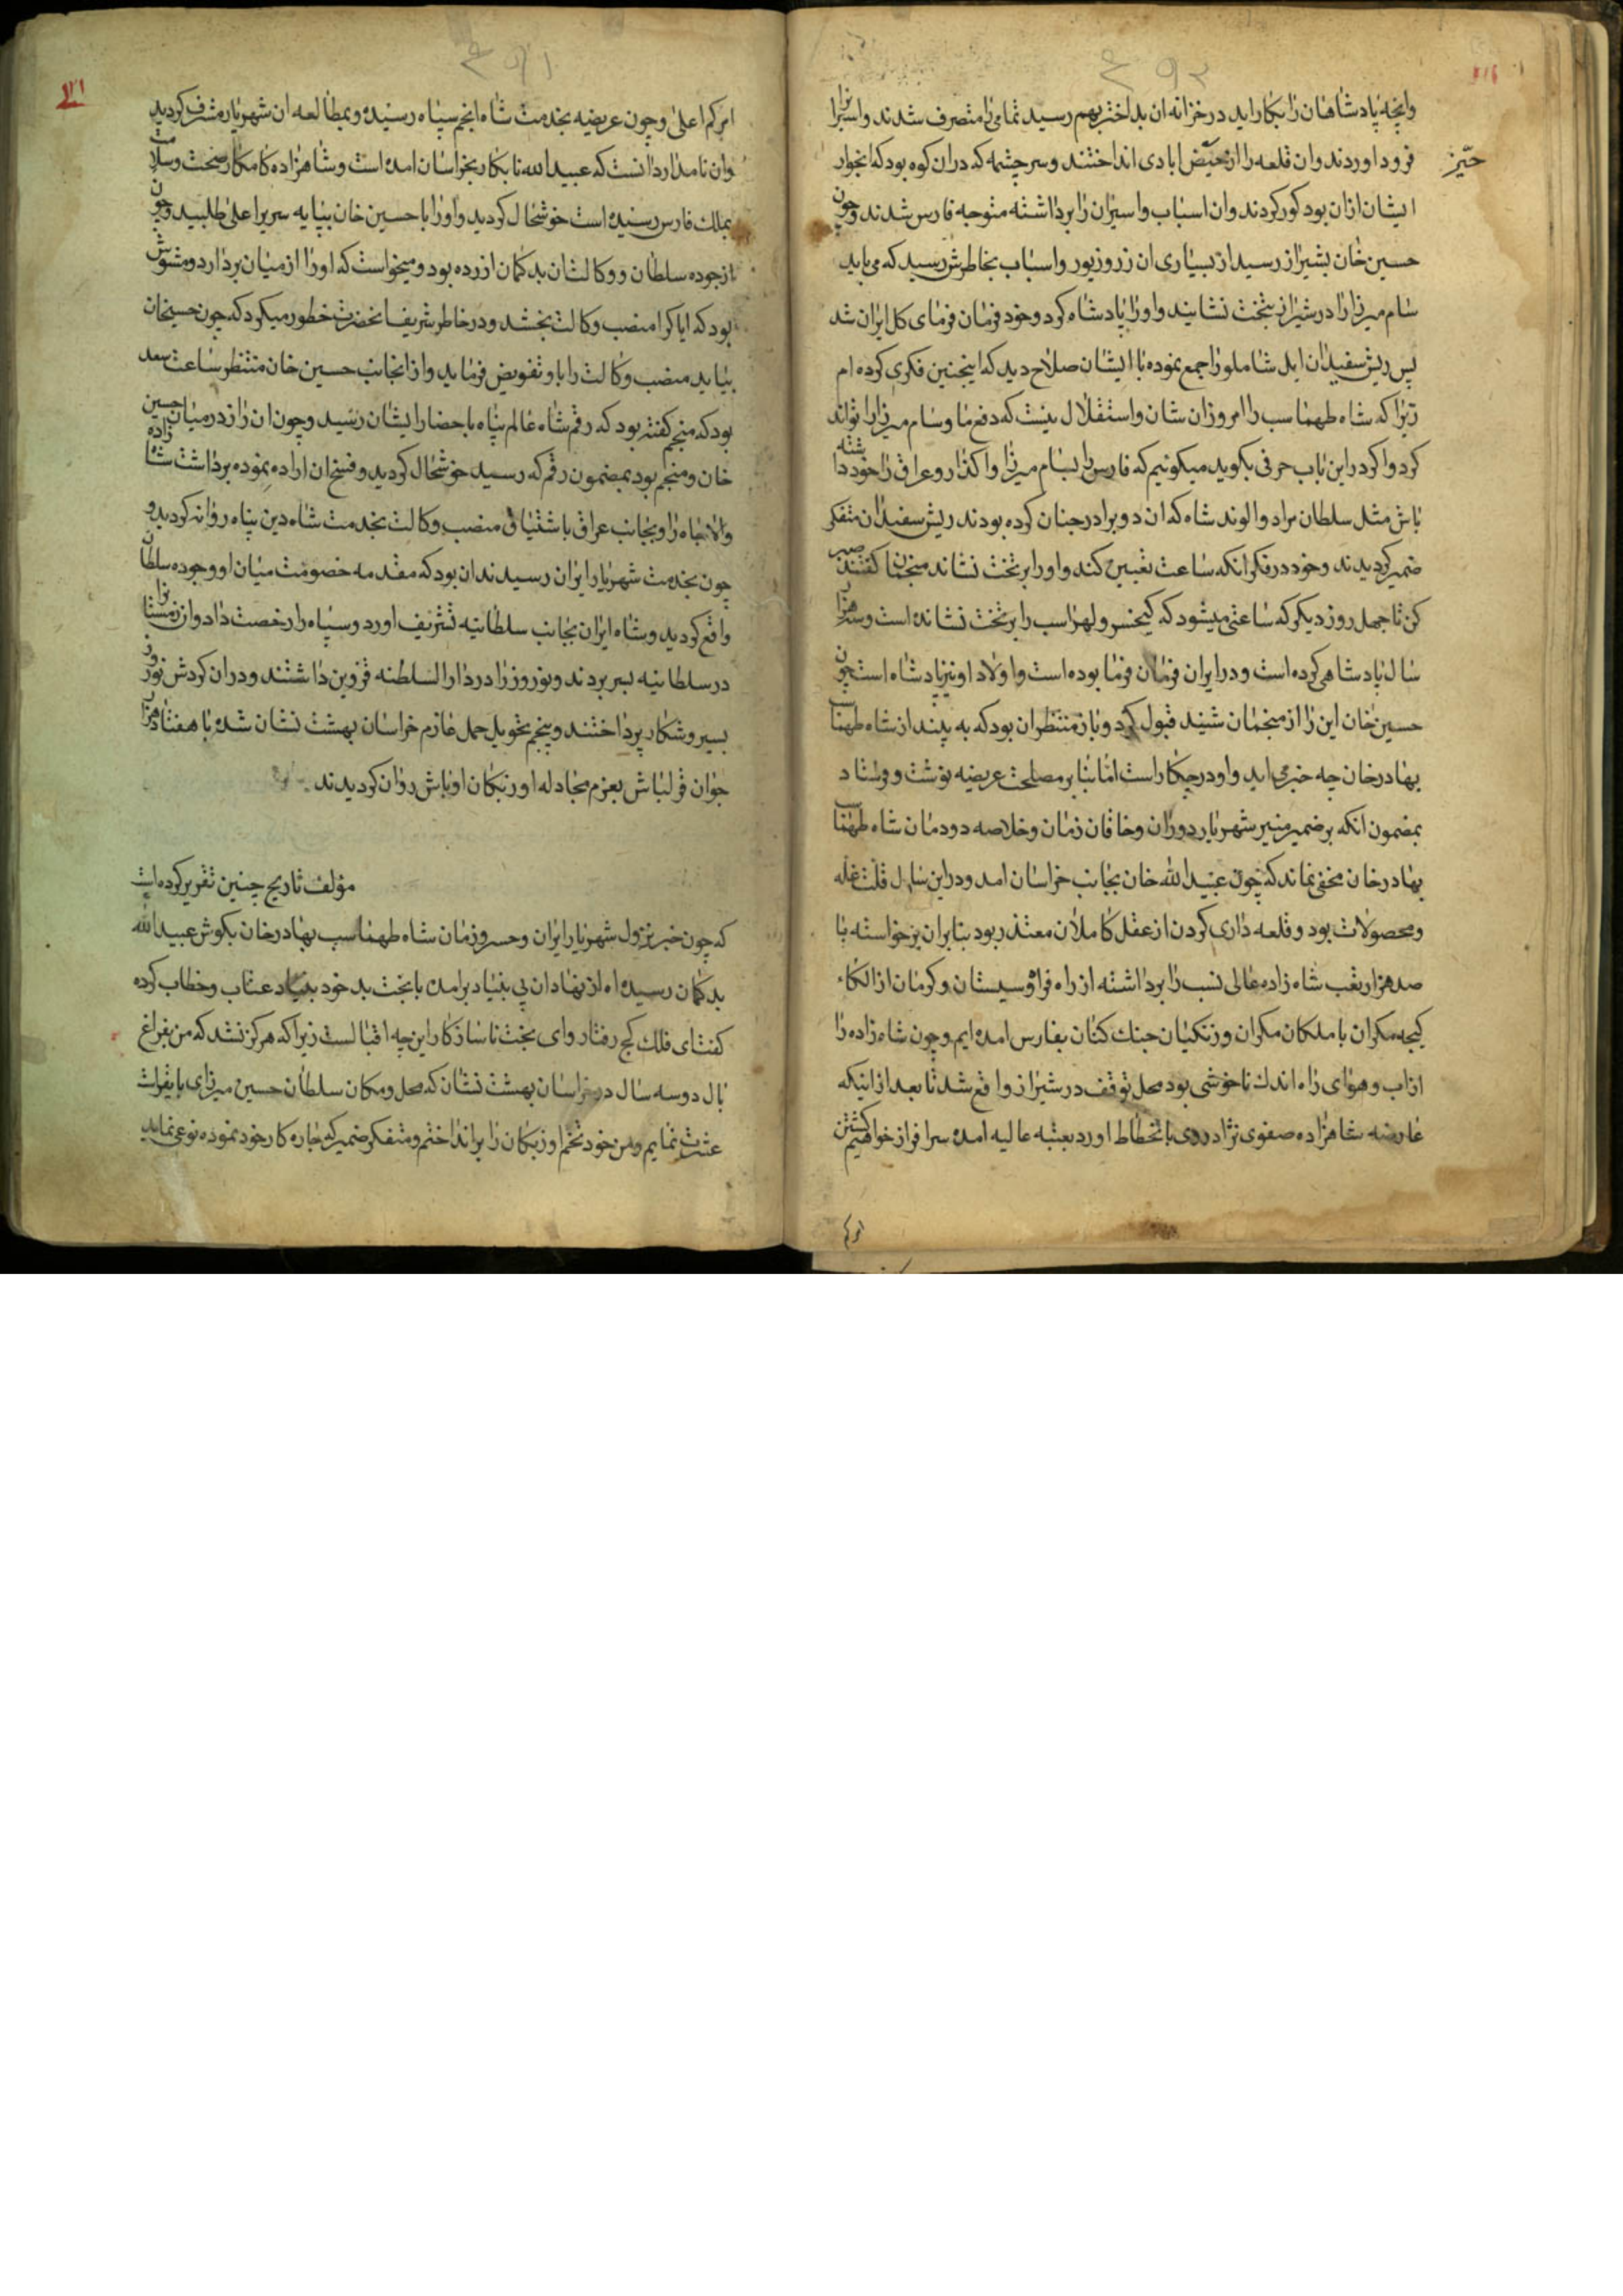 وانچه پادشاهان را بکار اید در خزانه ان بداختر بهم رسید تمامی را متصرف شدند و اسیرانرا
فرود اوردند وان قلعه را از حیض ابادی انداختند و سر چشمه که دران کوه بود که ابخوار
حیّز
ایشان ازان بود کور کردند وان اسباب و اسیران را برداشته متوجه فارس شدند و چون
حسین خان بشیراز رسید از بسیاری ان زر و زیور و اسباب بخاطرش رسید که می باید
سام میرزا را در شیراز بتخت نشانید و او را پادشاه کرد و خود فرمان فرمای کل ایران شد
پس ریش سفیدان ایل شاملو را جمع نموده با ایشان صلاح دید که اینچنین فکری کرده ام
زیرا که شاه طهماسب را امروز ان شان و استقلال نیست که دفع ما و سام میرزا را تواند
کرد و اکر در این باب حرفی بکوید میکوئیم که فارس را بسام میرزا واکذار و عراق را خود داشته
باش مثل سلطان مراد و الوند شاه که ان دو برادر چنان کرده بودند ریش سفیدان متفکر
ضمیر کردیدند و خود در فکر انکه ساعت تعیین کند و او را بر تخت نشاند منجمان کفتند صبر
کن تا چهل روز دیکر که ساعتی میشود که کیخسرو لهراسب را بر تخت نشانده است و سه هزار
سال پادشاهی کرده است و در ایران فرمان فرما بوده است و اولاد او نیز پادشاه است چون
حسین خان این را از منجمان شنید قبول کرد و باز منتظر ان بود که به بیند از شاه طهماسب
بهادر خان چه خبر می اید و او در چکار است اما بنا بر مصلحت عریضه نوشت و فرستاد
بمضمون انکه بر ضمیر منیر شهریار دوران و خاقان زمان و خلاصه دودمان شاه طهماسب
بهادر خان مخفی نماند که چون عبید الله خان بجانب خراسان امد و در این سال قلت غله
و محصولات بود و قلعه داری کردن از عقل کاملان معتذر بود بنابر ان برخواسته با
صد هزار تعب شاه زاده عالی نسب را برداشته از راه فراه و سیستان و کرمان از الکاء
کیجه مکران با ملکان مکران و زنکیان جنک کنان بفارس امده ایم و چون شاه زاده را
از اب و هوای راه اندک ناخوشی بود محل توقف در شیراز واقع شد تا بعد از اینکه
عارضه شاهزاده صفوی نژاد روی بانحطاط اورد بعتبه عالیه امده سرافراز خواهیم کشتن
امر کم اعلی و چون عریضه بخدمت شاه انجم سپاه رسیده و بمطالعه ان شهریار مشرف کردید
وان نامدار دانست که عبید الله نابکار بخراسان امده است و شاهزاده کامکار بصحت و سلامت
بملک فارس رسیده است خوشحال کردید و او را با حسین خان بپایه سریر اعلی طلبید و چون
از جوده سلطان و وکالت ان بدکمان ازرده بود و میخواست که او را از میان بردارد و مشوش
بود که ایا کرا منصب وکالت بخشد و در خاطر شریف انحضرت خطور میکرد که چون حسینخان
بیاید منصب وکالت را باو تفویض فرماید و از انجانب حسین خان منتظر ساعت سعد
بود که منجم کفته بود که رقم شاه عالم پناه باحضار ایشان رسید و چون ان راز در میان حسین
خان و منجم بود بمضمون رقم که رسید خوشحال کردید و فسخ ان اراده نموده برداشت شاهزاده
والاجاه را و بجانب عراق باشتیاق منصب وکالت بخدمت شاه دین پناه روانه کردید و
چون بخدمت شهریار ایران رسیدند ان بود که مقدمه خصومت میان او و جوده سلطان
واقع کردید و شاه ایران بجانب سلطانیه تشریف اورد و سپاه را رخصت داد و ان زمستانرا
در سلطانیه بسر بردند و نوروز را در دار السلطنه قزوین داشتند و دران کردش نوروز
بسیر و شکار پرداختند و پنجم تحویل حمل عازم خراسان بهشت نشان شده با هفتاد هزار
جوان قزلباش بعزم مجادله اوزبکان اوباش روان کردیدند
مؤلف تاریخ چنین تقریر کرده است
که چون خبر نزول شهریار ایران و خسرو زمان شاه طهماسب بهادر خان بکوش عبید الله
بدکمان رسید اه از نهاد ان بی بنیاد برامده با بخت بد خود بنیاد عتاب و خطاب کرده
کفت ای فلک کج رفتار و ای بخت ناسازکار این چه اقبالست زیرا که هرکز نشد که من بفراغ
بال دو سه سال در خراسان بهشت نشان که محل و مکان سلطان حسین میرزای بایقراست
عشرت نمایم و من خود تخم اوزبکان را برانداختم و متفکر ضمیر که چاره کار خود نموده نوعی نماید